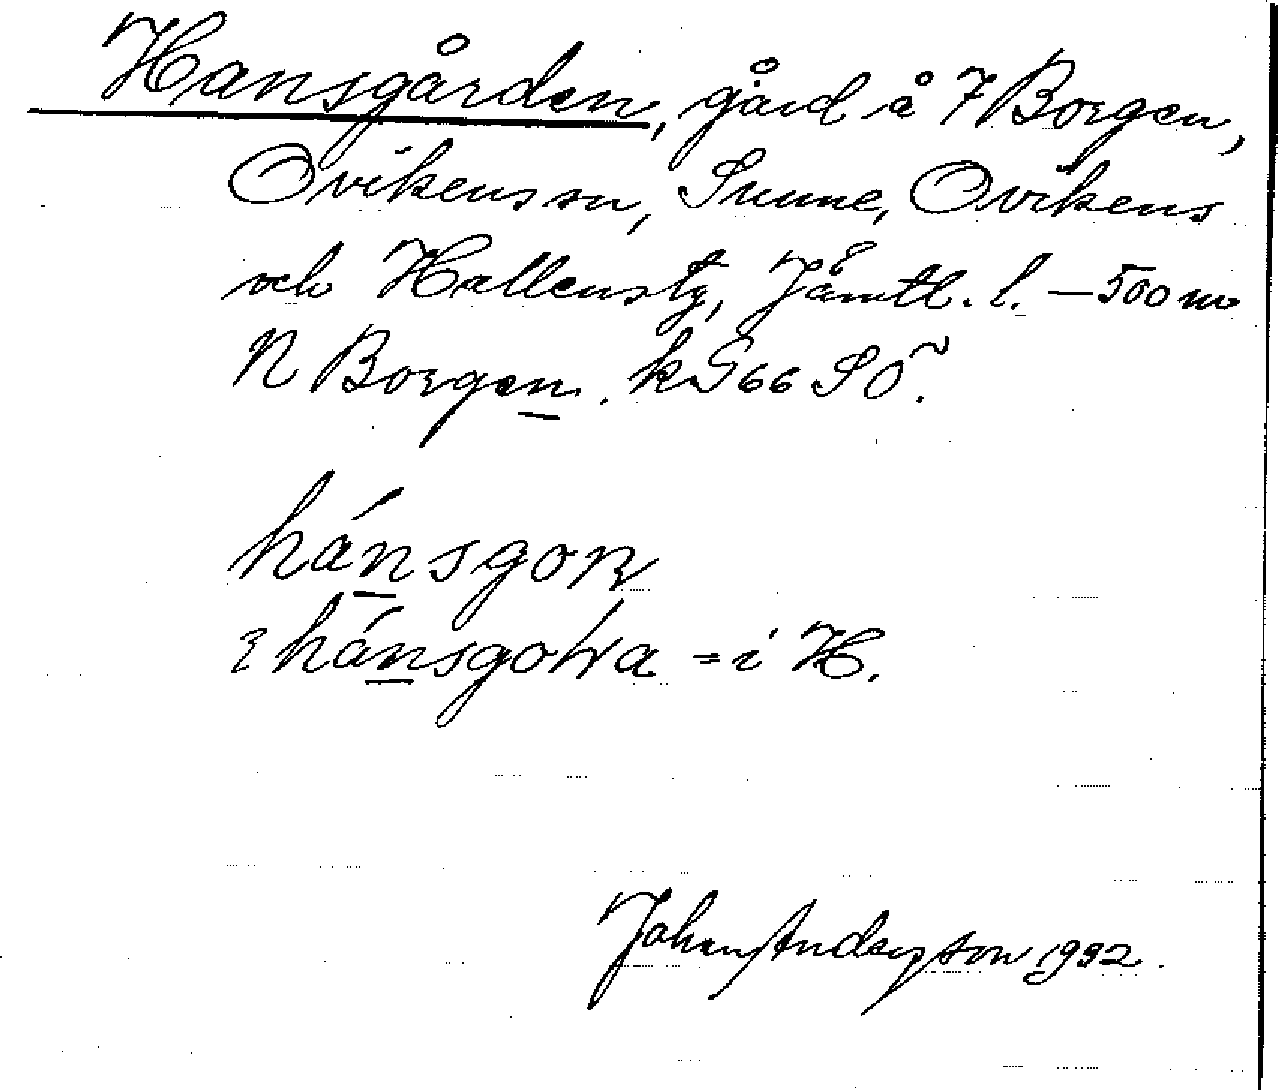 Hansgården, gård å 7 Borgen,
Ovikens sn, Sunne, Ovikens
och Hallens tg, Jämtl. l. – 500 m
N Borgen. kG 66 SÖ.
hánsgoɴ
ɩ hánsgoɴa = i H.
Johan Anderson 1932.